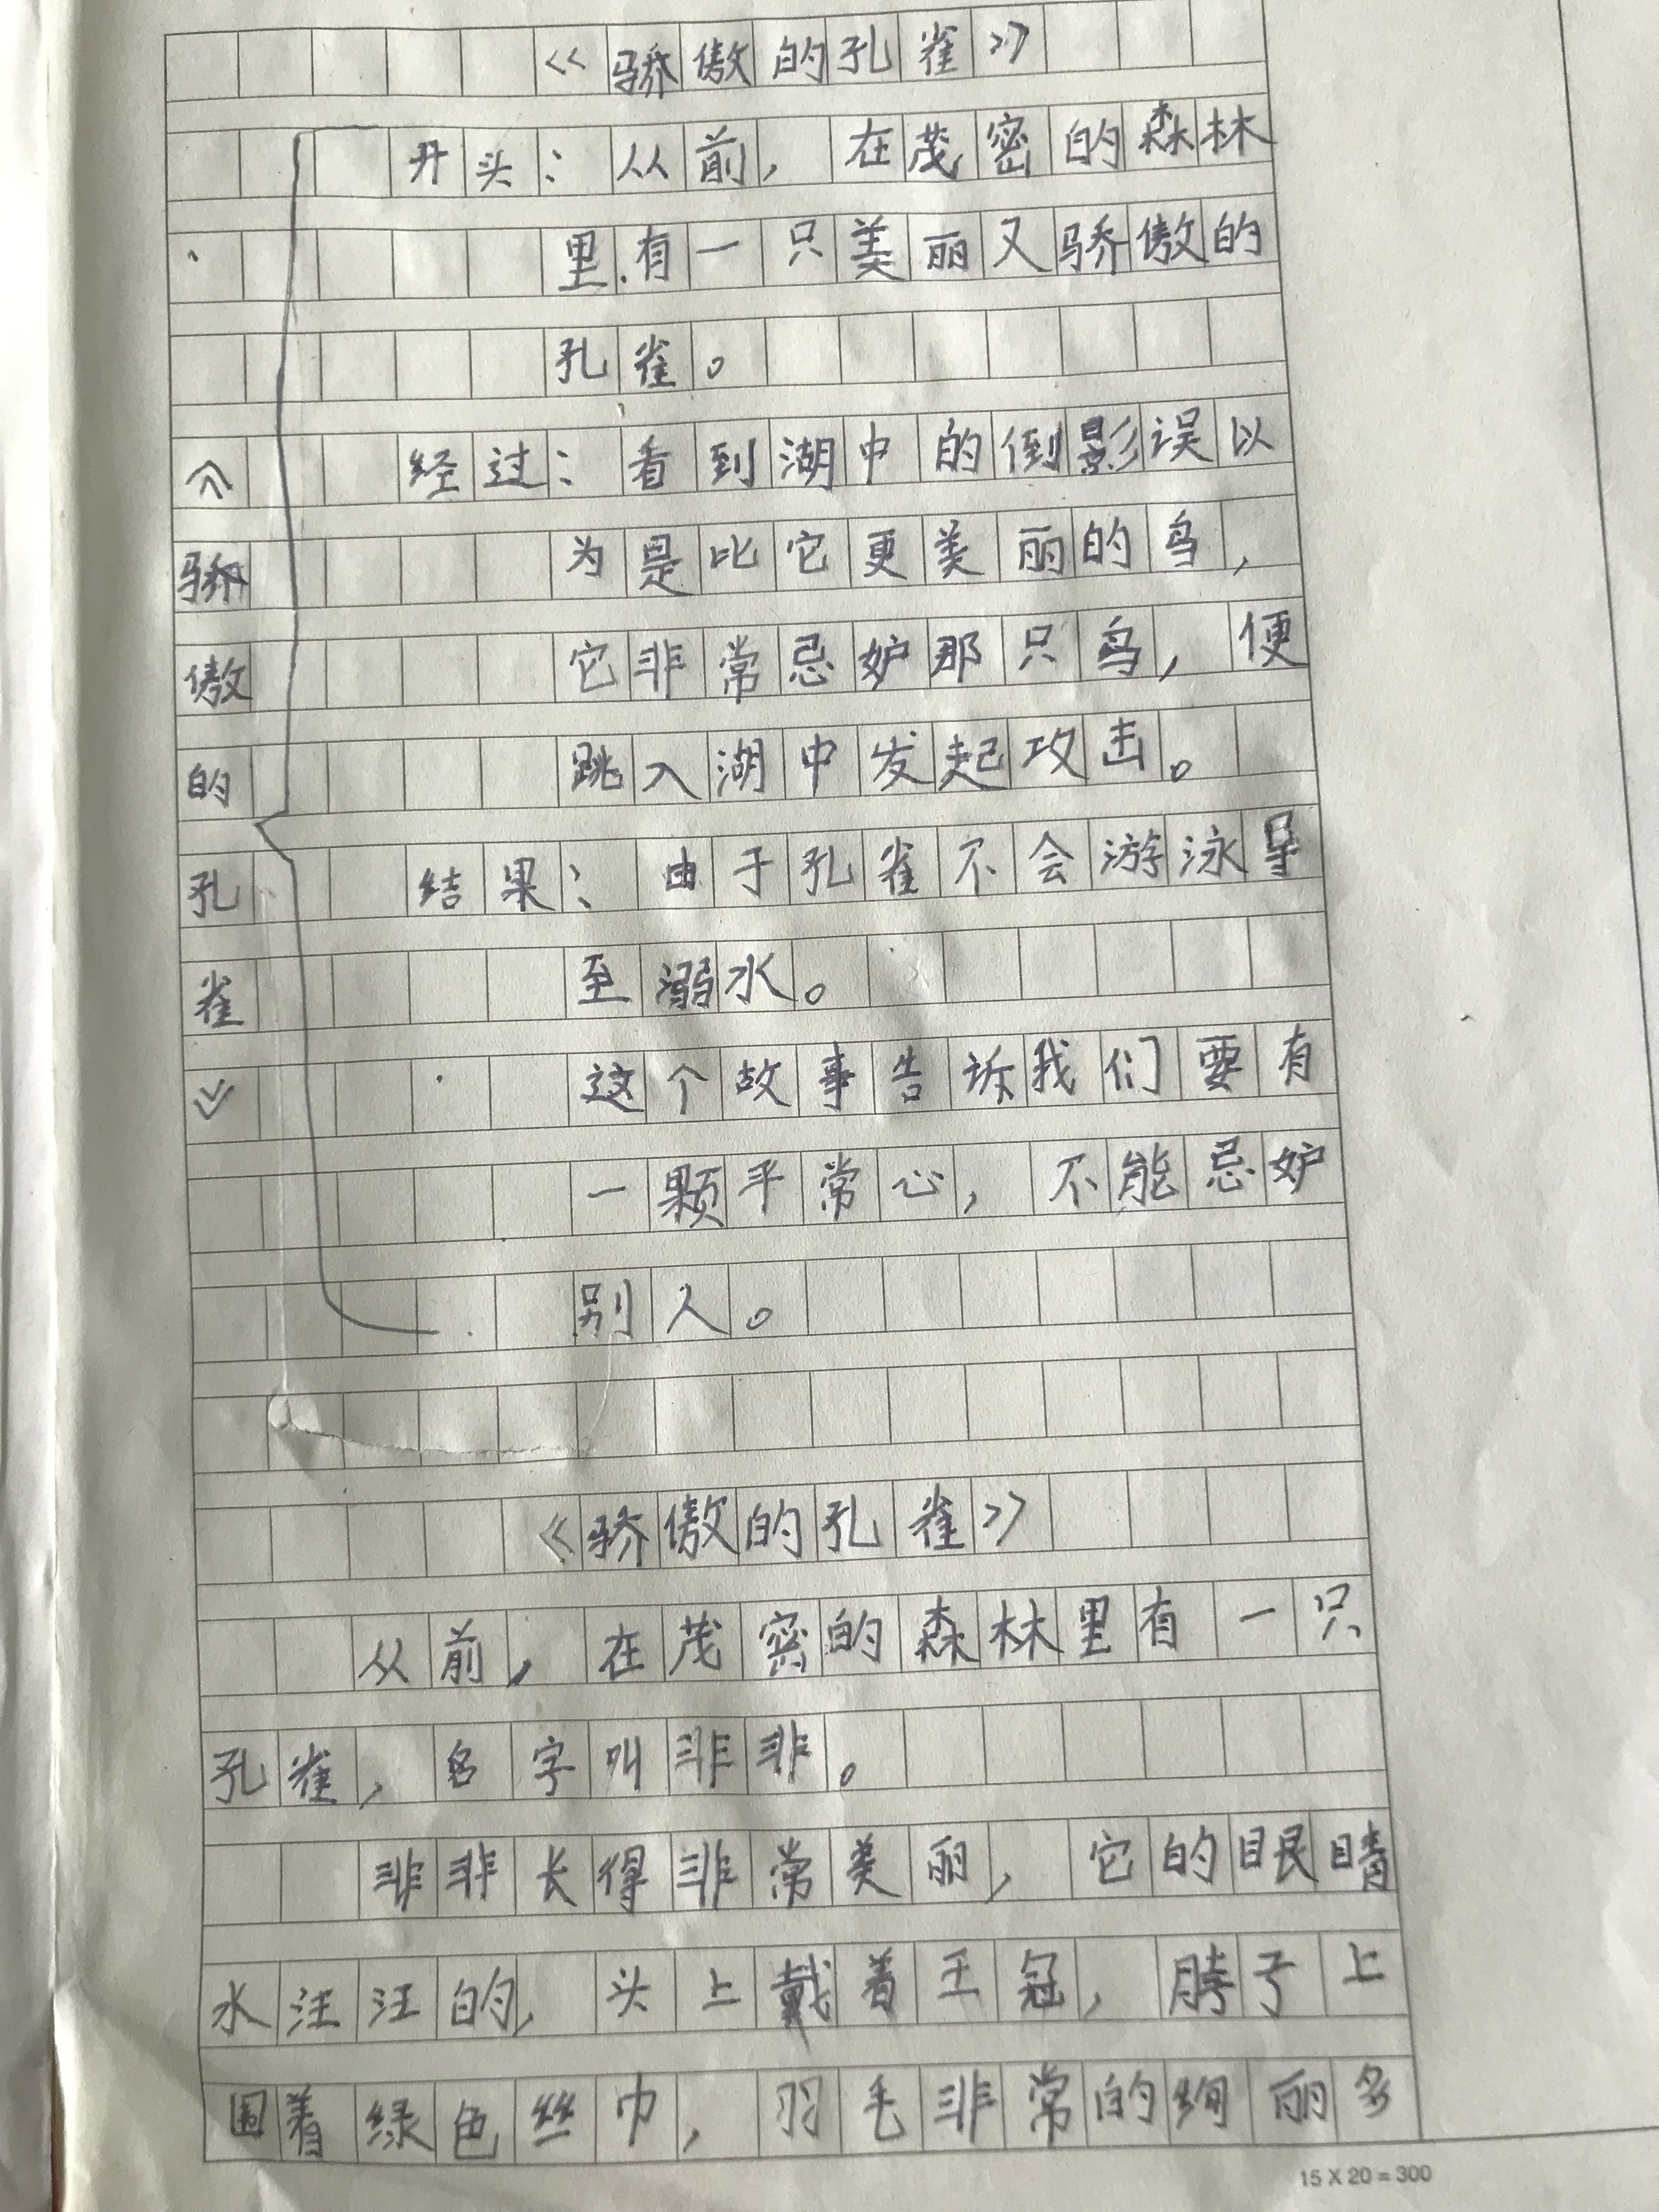 《骄傲的孔雀》
开头：从前，在茂密的森林
里有一只美丽又骄傲的
孔雀。
经过：看到湖中的倒影误以
为是比它更美丽的鸟，
它非常忌妒那只鸟，便
跳入湖中发起攻击。
结果：由于孔雀不会游泳导
至溺水。
这个故事告诉我们要有
一颗平常心，不能忌妒
别人。
《骄傲的孔雀》
《骄傲的孔雀》
从前，在茂密的森林里有一只
孔雀，名字叫非非。
非非长得非常美丽，它的眼睛
水汪汪的，头上戴着王冠，脖子上
围着绿色丝巾，羽毛非常的绚丽多
15 X 20 = 300